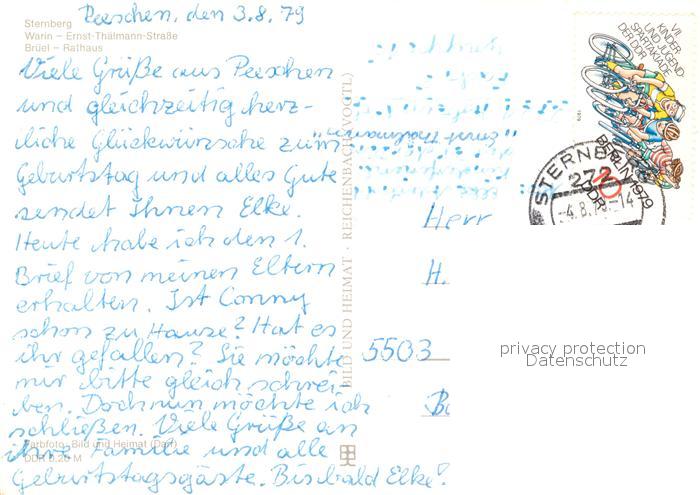 Peeschen, den 3.8.79
Sternberg
Warin – Ernst-Thälmann-Straße
Brüel – Rathaus
Viele Grüße aus Peeschen
und gleichzeitig herz-
liche Glückwünsche zum
Geburtstag und alles Gute
sendet Ihnen Elke.
Heute habe ich den 1.
Brief von meinen Eltern
erhalten. Ist Conny
schon zu Hause? Hat es
ihr gefallen? Sie möchte
mir bitte gleich schrei-
ben. Doch nun möchte ich
schließen. Viele Grüße an
ihre Familie und alle
Geburtstagsgäste. Bis bald Elke!
Farbfoto: Bild und Heimat (Darr)
DDR 0,20 M
BILD UND HEIMAT · REICHENBACH (VOGTL)
"Ernst Thälmann"
VII.
KINDER-
UND JUGEND-
SPARTAKIADE
DER DDR
BERLIN 1979
10
DDR
1979
STERNBERG
272
-4.8.79-14
Herr
H.
5503
privacy protection
Datenschutz